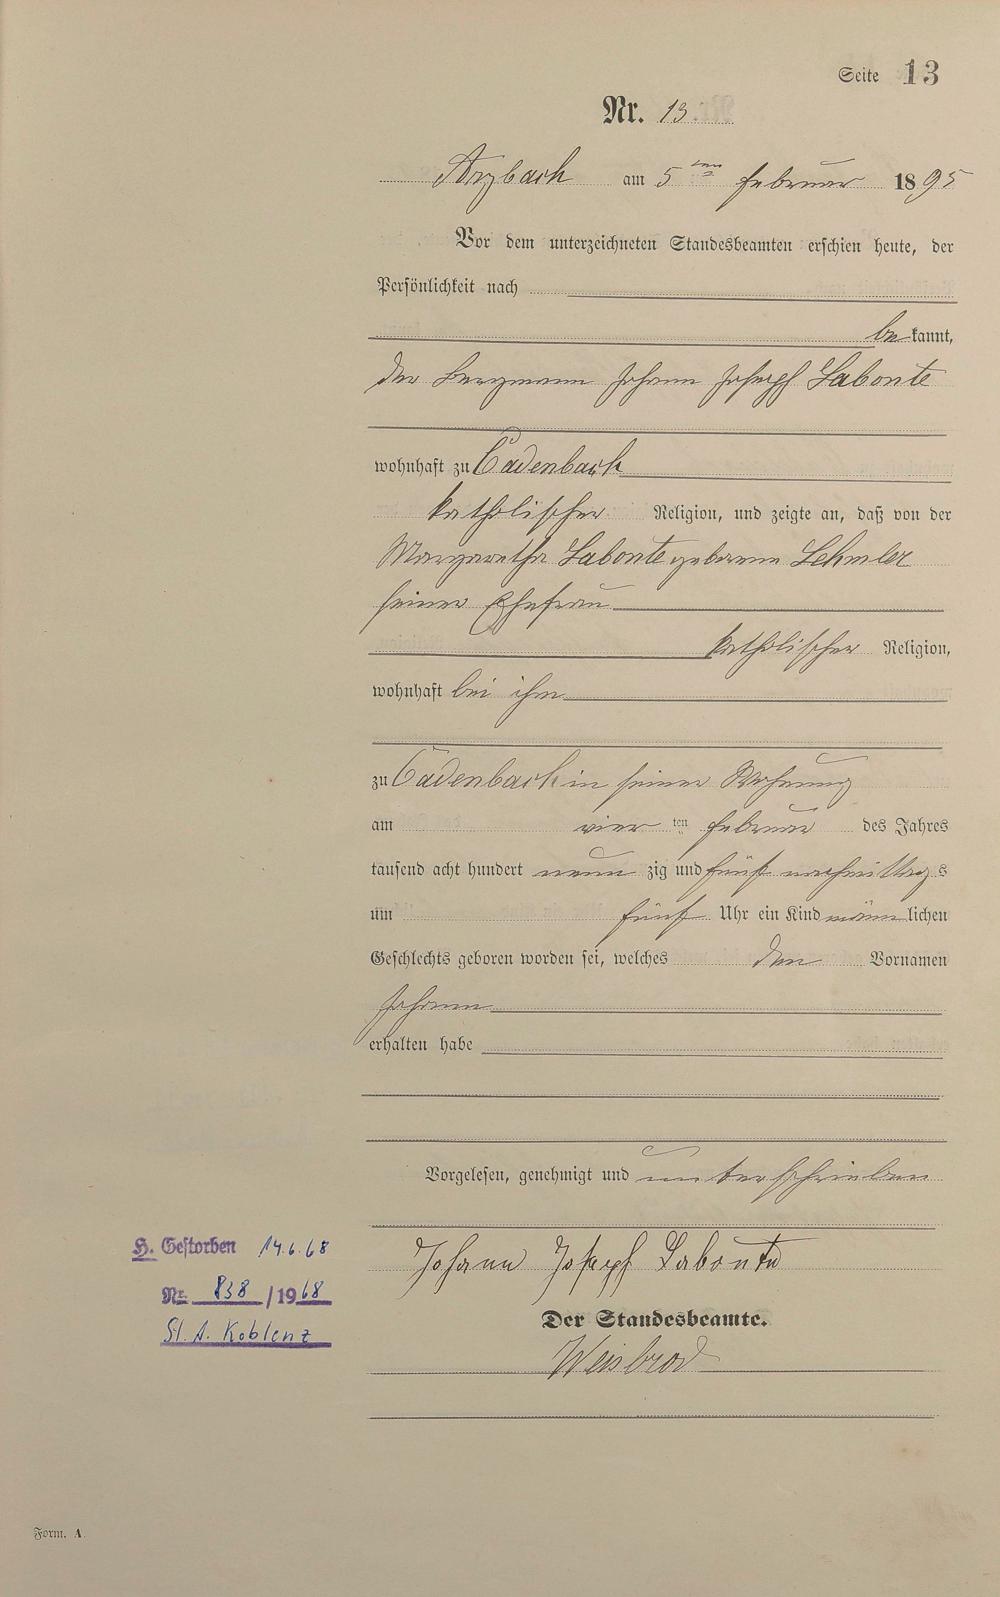 Seite 13
Nr. 13.
Arzbach am 5ten Februar 1895
Vor dem unterzeichneten Standesbeamten erschien heute, der
Persönlichkeit nach
bekannt,
der Bergmann Johann Joseph Labonte
wohnhaft zu Cadenbach
katholischer Religion, und zeigte an, daß von der
Margaretha Labonte geborene Lehmler
seiner Ehefrau
katholischer Religion,
wohnhaft bei ihm
zu Cadenbach in seiner Wohnung
am vierten Februar des Jahres
tausend acht hundert neunzig und fünf nachmittags
um fünf Uhr ein Kind männlichen
Geschlechts geboren worden sei, welches den Vornamen
Johann
erhalten habe
Vorgelesen, genehmigt und unterschrieben
Johann Joseph Labonte
Der Standesbeamte.
Weisbrod
H. Gestorben 14.6.68
Nr. 838/1968
St. A. Koblenz
Form. A.